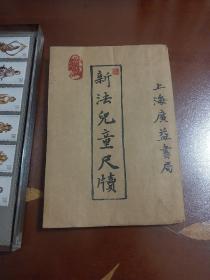 上海廣益書局
新法兒童尺牘